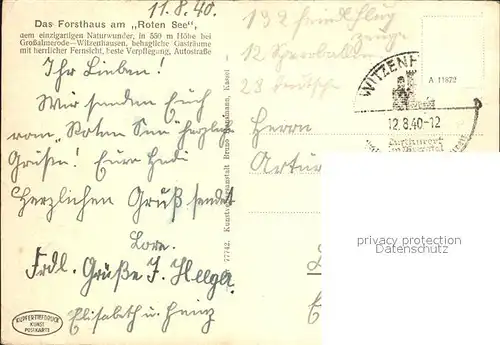 11.8.40.
Das Forsthaus am „Roten See“,
dem einzigartigen Naturwunder, in 550 m Höhe bei
Großalmerode—Witzenhausen, behagliche Gasträume
mit herrlicher Fernsicht, beste Verpflegung, Autostraße
Ihr Lieben!
Wir senden Euch
vom „Roten See“ herzliche
Grüße! Eure Hedi
Herzlichen Gruß sendet
Lore.
Frdl. Grüße J. Helga.
Elisabeth u. Heinz
KUPFERTIEFDRUCK
KUNST
POSTKARTE
77742. Kunstverlagsanstalt Bruno Kassel
132 feindl. Flug
zeuge
12 Sperrballone
28 Deutsche
A 11872
WITZENH
12.8.40-12
Luftkurort
Herrn
Artur
privacy protection
Datenschutz